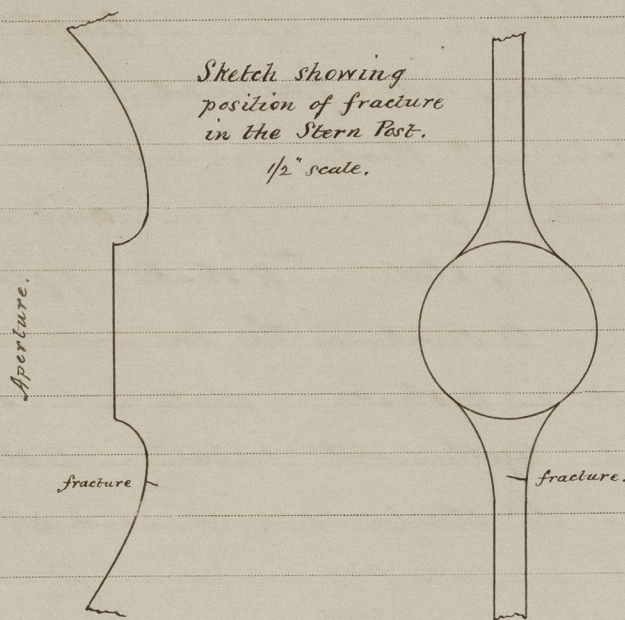 Sketch showing
position of fracture
in the Stern Post.
1/2" scale.
Aperture.
fracture
fracture.